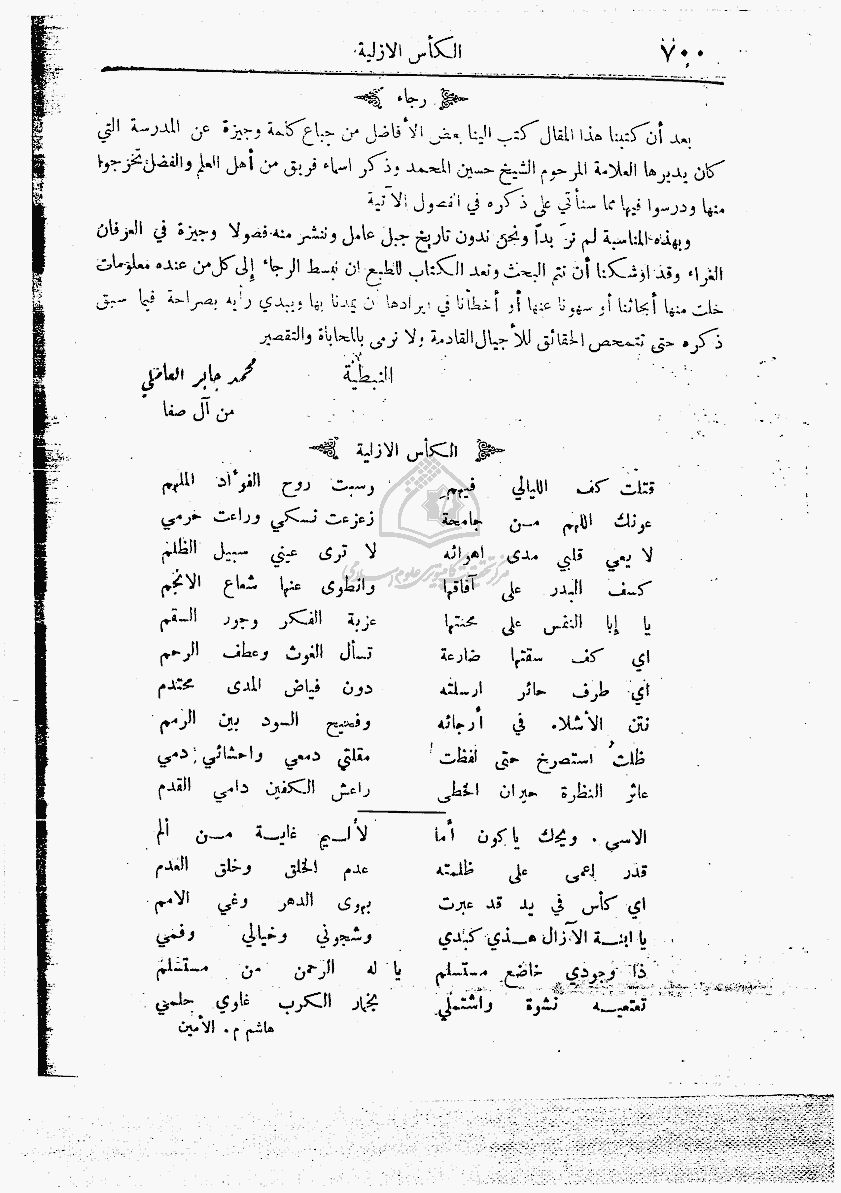 ٧٠٠ الكأس الازلية
رجاء
بعد أن كتبنا هذا المقال كتب الينا بعض الأفاضل من جباع كلمة وجيزة عن المدرسة التي
كان يديرها العلامة المرحوم الشيخ حسين المحمد وذكر اسماء فريق من أهل العلم والفضل تخرجوا
منها ودرسوا فيها مما سنأتي على ذكره في الفصول الآتية
وبهذه المناسبة لم نرَ بداً ونحن ندون تاريخ جبل عامل وننشر منه فصولا وجيزة في العرفان
الغراء وقد اوشكنا أن نتم البحث ونعد الكتاب للطبع ان نبسط الرجاء إلى كل من عنده معلومات
خلت منها أبحاثنا أو سهونا عنها أو أخطأنا في ايرادها أن يمدنا بها ويبدي رأيه بصراحة فيما سبق
ذكره حتى تتمحص الحقائق للأجيال القادمة ولا نرمى بالمحاباة والتقصير
النبطية محمد جابر العاملي
من آل صفا
الكأس الازلية
قتلت كف الليالي فيهم وسبت روح الفؤاد الملهم
عونك اللهم من جامحة زعزعت نسكي وراعت حرمي
لا يعي قلبي مدى اهوائه لا ترى عيني سبيل الظلم
كسف البدر على آفاقها وانطوى عنها شعاع الانجم
يا إبا النفس على محنتها عزبة الفكر وجور السقم
اي كف سقتها ضارعة تسأل الغوث وعطف الرحم
اي طرف حائر ارسلته دون فياض المدى محتدم
نتن الأشلاء في أرجائه وفحيح السود بين الرمم
ظلت استصرخ حتى لفظت مقلتي دمعي واحشائي دمي
عاثر النظرة حيران الخطى راعش الكفين دامي القدم
الاسي . ويحك ياكون أما لأليم غاية من ألم
قدر اعمى على ظلمته عدم الخلق وخلق العدم
اي كأس في يد قد عبرت بهوى الدهر وغي الامم
يا ابنة الآزال هذي كبدي وشجوني وخيالي وفمي
ذا وجودي خاضع مستسلم يا له الرحمن من مستسلم
تعتعيه نشوة واشتملي بخمار الكرب غاوي حلمي
هاشم م. الأمين
مركز تحقیقات کامپیوتری علوم اسلامی